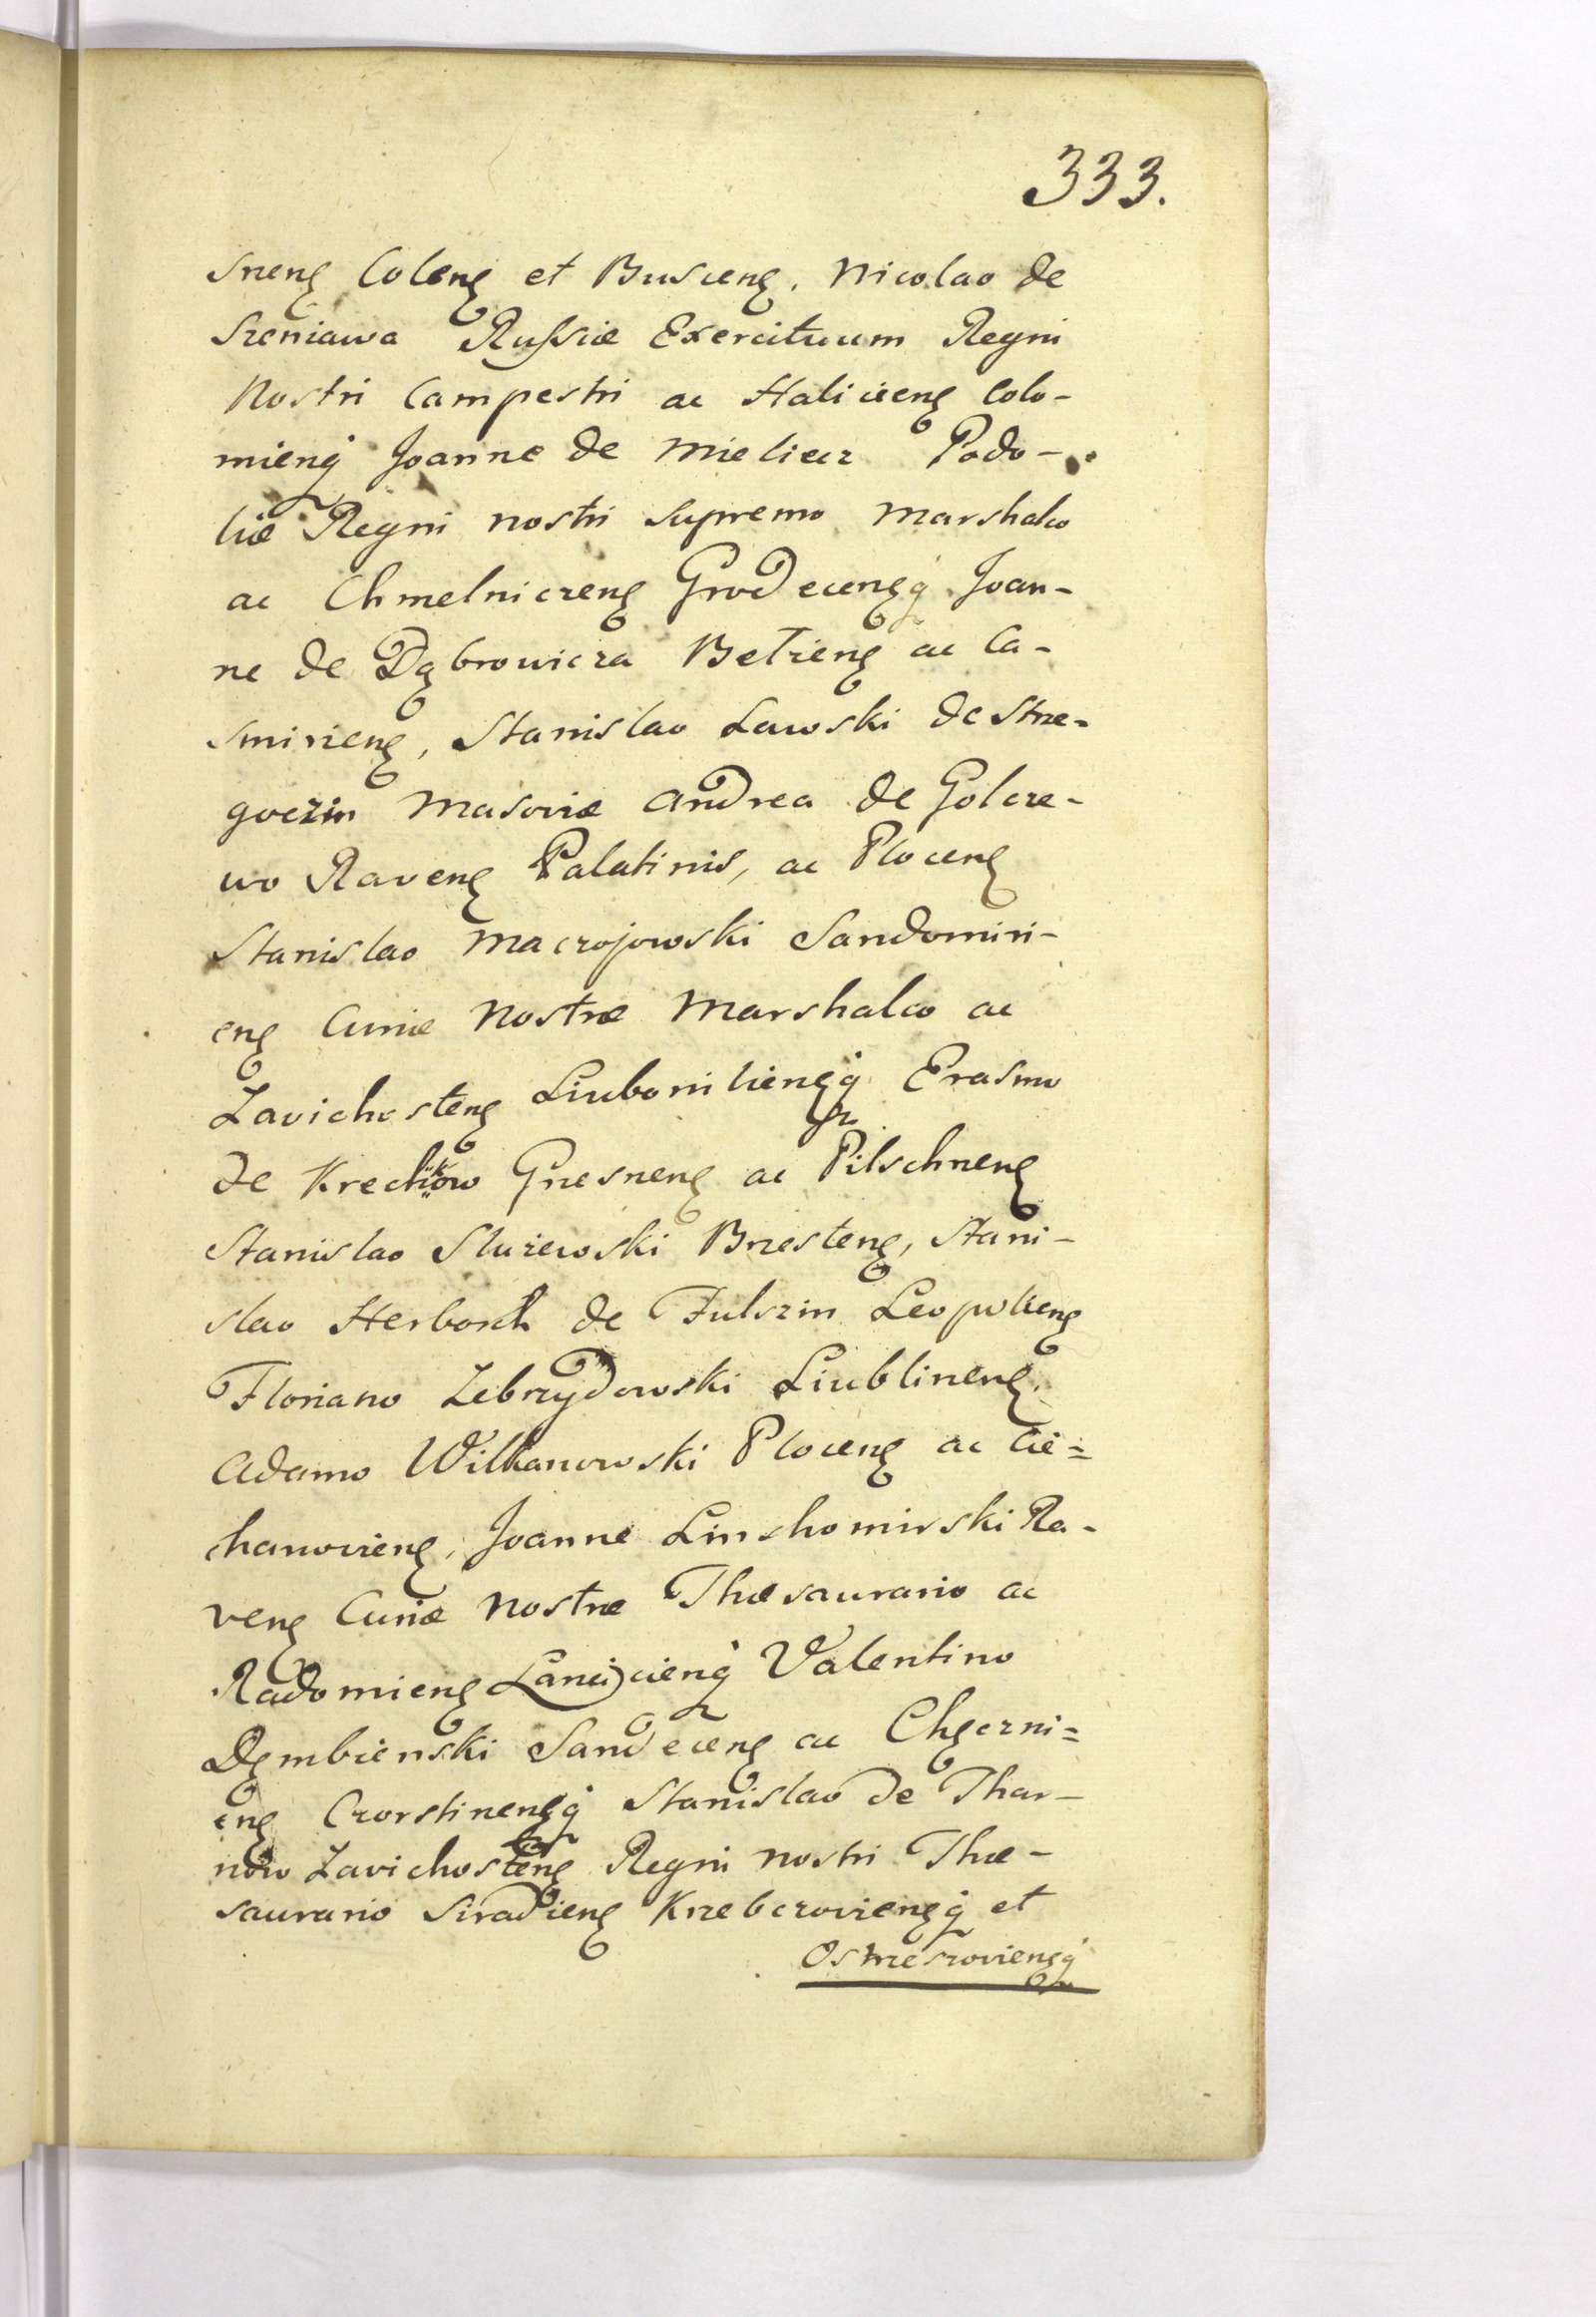 333.
sneng Coleng et Busceng. Nicolao de
Sreniawa Russiæ Exercituum Regni
Nostri Campestri ac Haliciieng Colo-
mieng Joanne de Mieliecz Podo-
liæ Regni nostri Supremo Marshalco
ac Chmelniczeng Grodecengq Joan-
ne de Dąbrowicza Betzeng ac Ca-
smirieng, Stanislao Lawski de Strze-
goczin Masoviæ Andrea de Golcze-
wo Raveng Palatinis, ac Ploceng
Stanislao Maczojowski Sandomiri-
eng Curiæ Nostræ Marshalco ac
Zavichosteng Liubomliengq Erasmo
de Krechkow Gnesneng ac Pilschneng
Stanislao Służewski Bresteng, Stani-
slao Herborth de Fulszin Leopolieng
Floriano Zebrzydowski Liublineng.
Adamo Wilkanowski Ploceng ac Cie=
chanovieng, Joanne Linshomirski Ra-
veng Curiæ Nostræ Thæsaurario ac
Radomieng Lancicieng Valentino
Dęmbieński Sandeceng ac Chęczni=
eng Czorstinengq Stanislao de Thar-
nów Zavichosteng Regni nostri Thæ-
saurario Siradieng Krzebczoviengq et
Ostrzeszoviengq